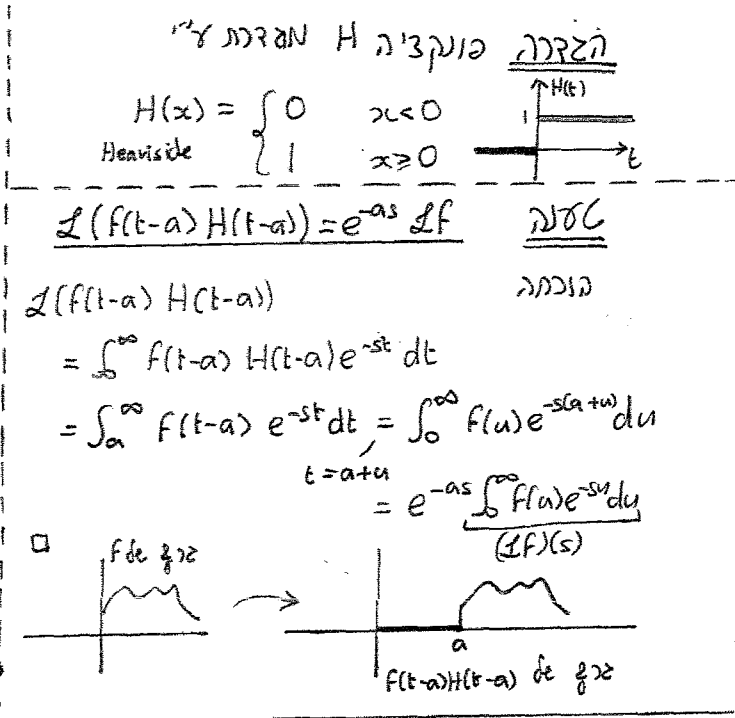 הגדרה פונקציה H מוגדרת ע"י
H(x) = { 0 x<0
Heaviside { 1 x≥0
H(t)
1
t
טענה L(f(t-a) H(t-a)) = e^{-as} Lf
הוכחה
L(f(t-a) H(t-a))
= ∫_0^∞ f(t-a) H(t-a) e^{-st} dt
= ∫_a^∞ f(t-a) e^{-st} dt = ∫_0^∞ f(u) e^{-s(a+u)} du
t=a+u
= e^{-as} ∫_0^∞ f(u) e^{-su} du
(Lf)(s)
□
גרף של f
a
גרף של f(t-a)H(t-a)